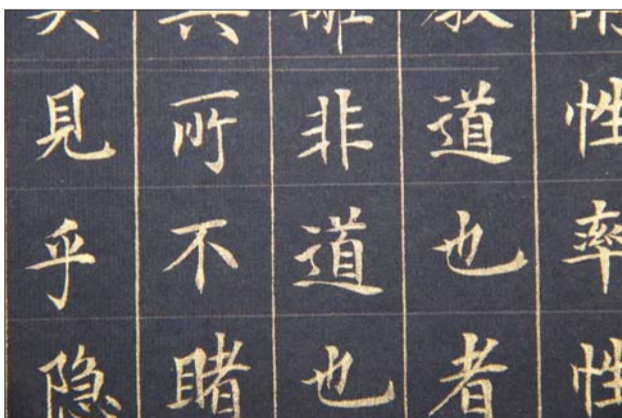 性率性
道也者
非道也
所不睹
見乎隐